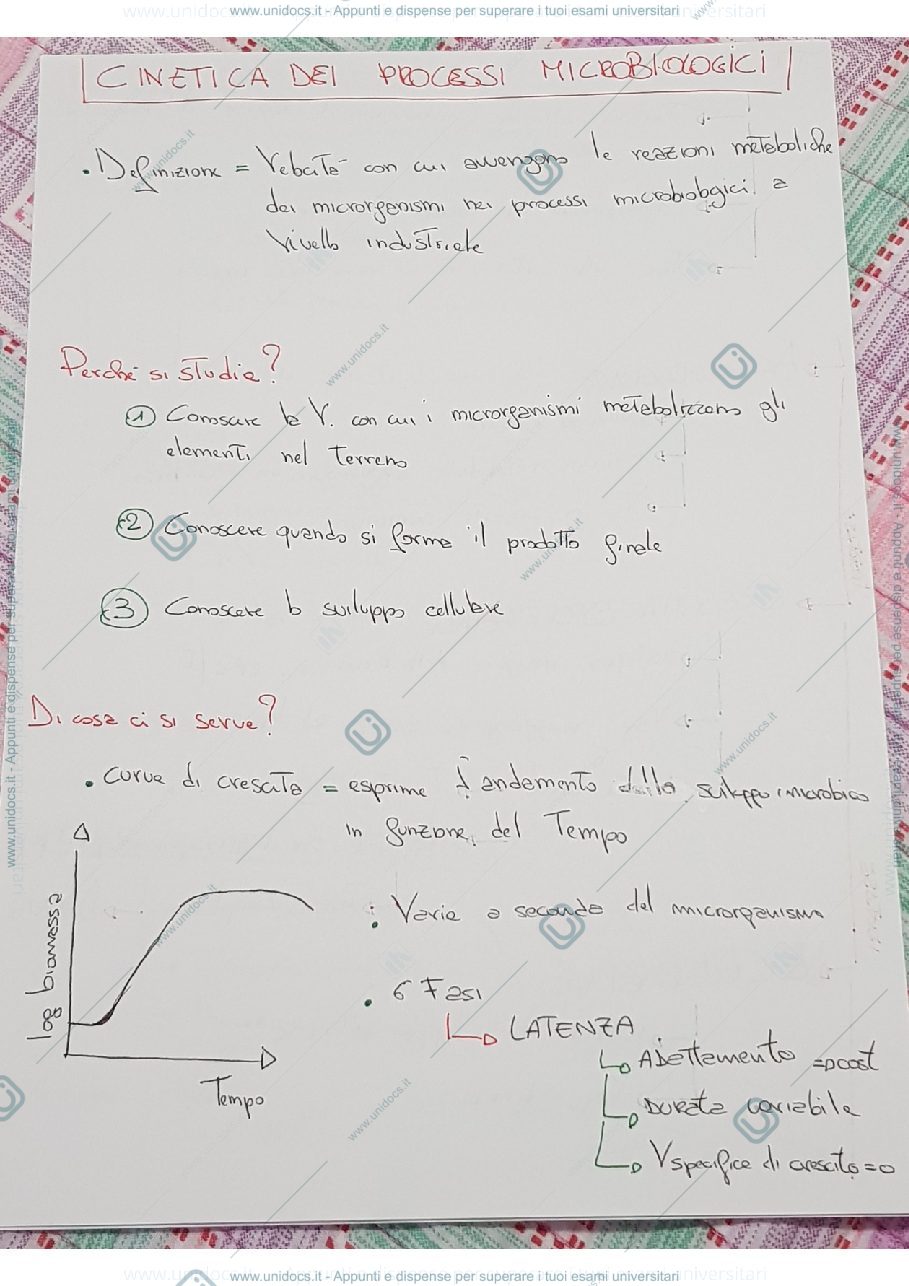 www.unidocs.it - Appunti e dispense per superare i tuoi esami universitari
CINETICA DEI PROCESSI MICROBIOLOGICI
• Definizione = Velocità con cui avvengono le reazioni metaboliche
dei microrganismi nei processi microbiologici a
livello industriale
Perché si studia?
1 Conoscere la V. con cui i microrganismi metabolizzano gli
elementi nel terreno
2 Conoscere quando si forma il prodotto finale
3 Conoscere lo sviluppo cellulare
Di cosa ci si serve?
• Curva di crescita = esprime l'andamento dello sviluppo microbico
in funzione del Tempo
log biomassa
Tempo
• Varia a seconda del microrganismo
• 6 Fasi
LATENZA
Adattamento => cost
Durata variabile
V specifica di crescita = 0
www.unidocs.it - Appunti e dispense per superare i tuoi esami universitari